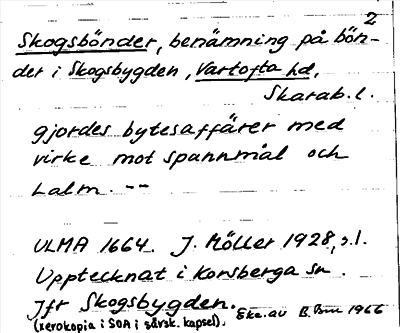 2
Skogsbönder, benämning på bön-
der i Skogsbygden, Vartofta hd,
Skarab. l.
gjordes bytesaffärer med
virke mot spannmål och
halm. --
ULMA 1664. J. Möller 1928, s. 1.
Upptecknat i Korsberga sn.
Jfr Skogsbygden.
(xerokopia i SOA i särsk. kapsel). Exc. av B. 1966